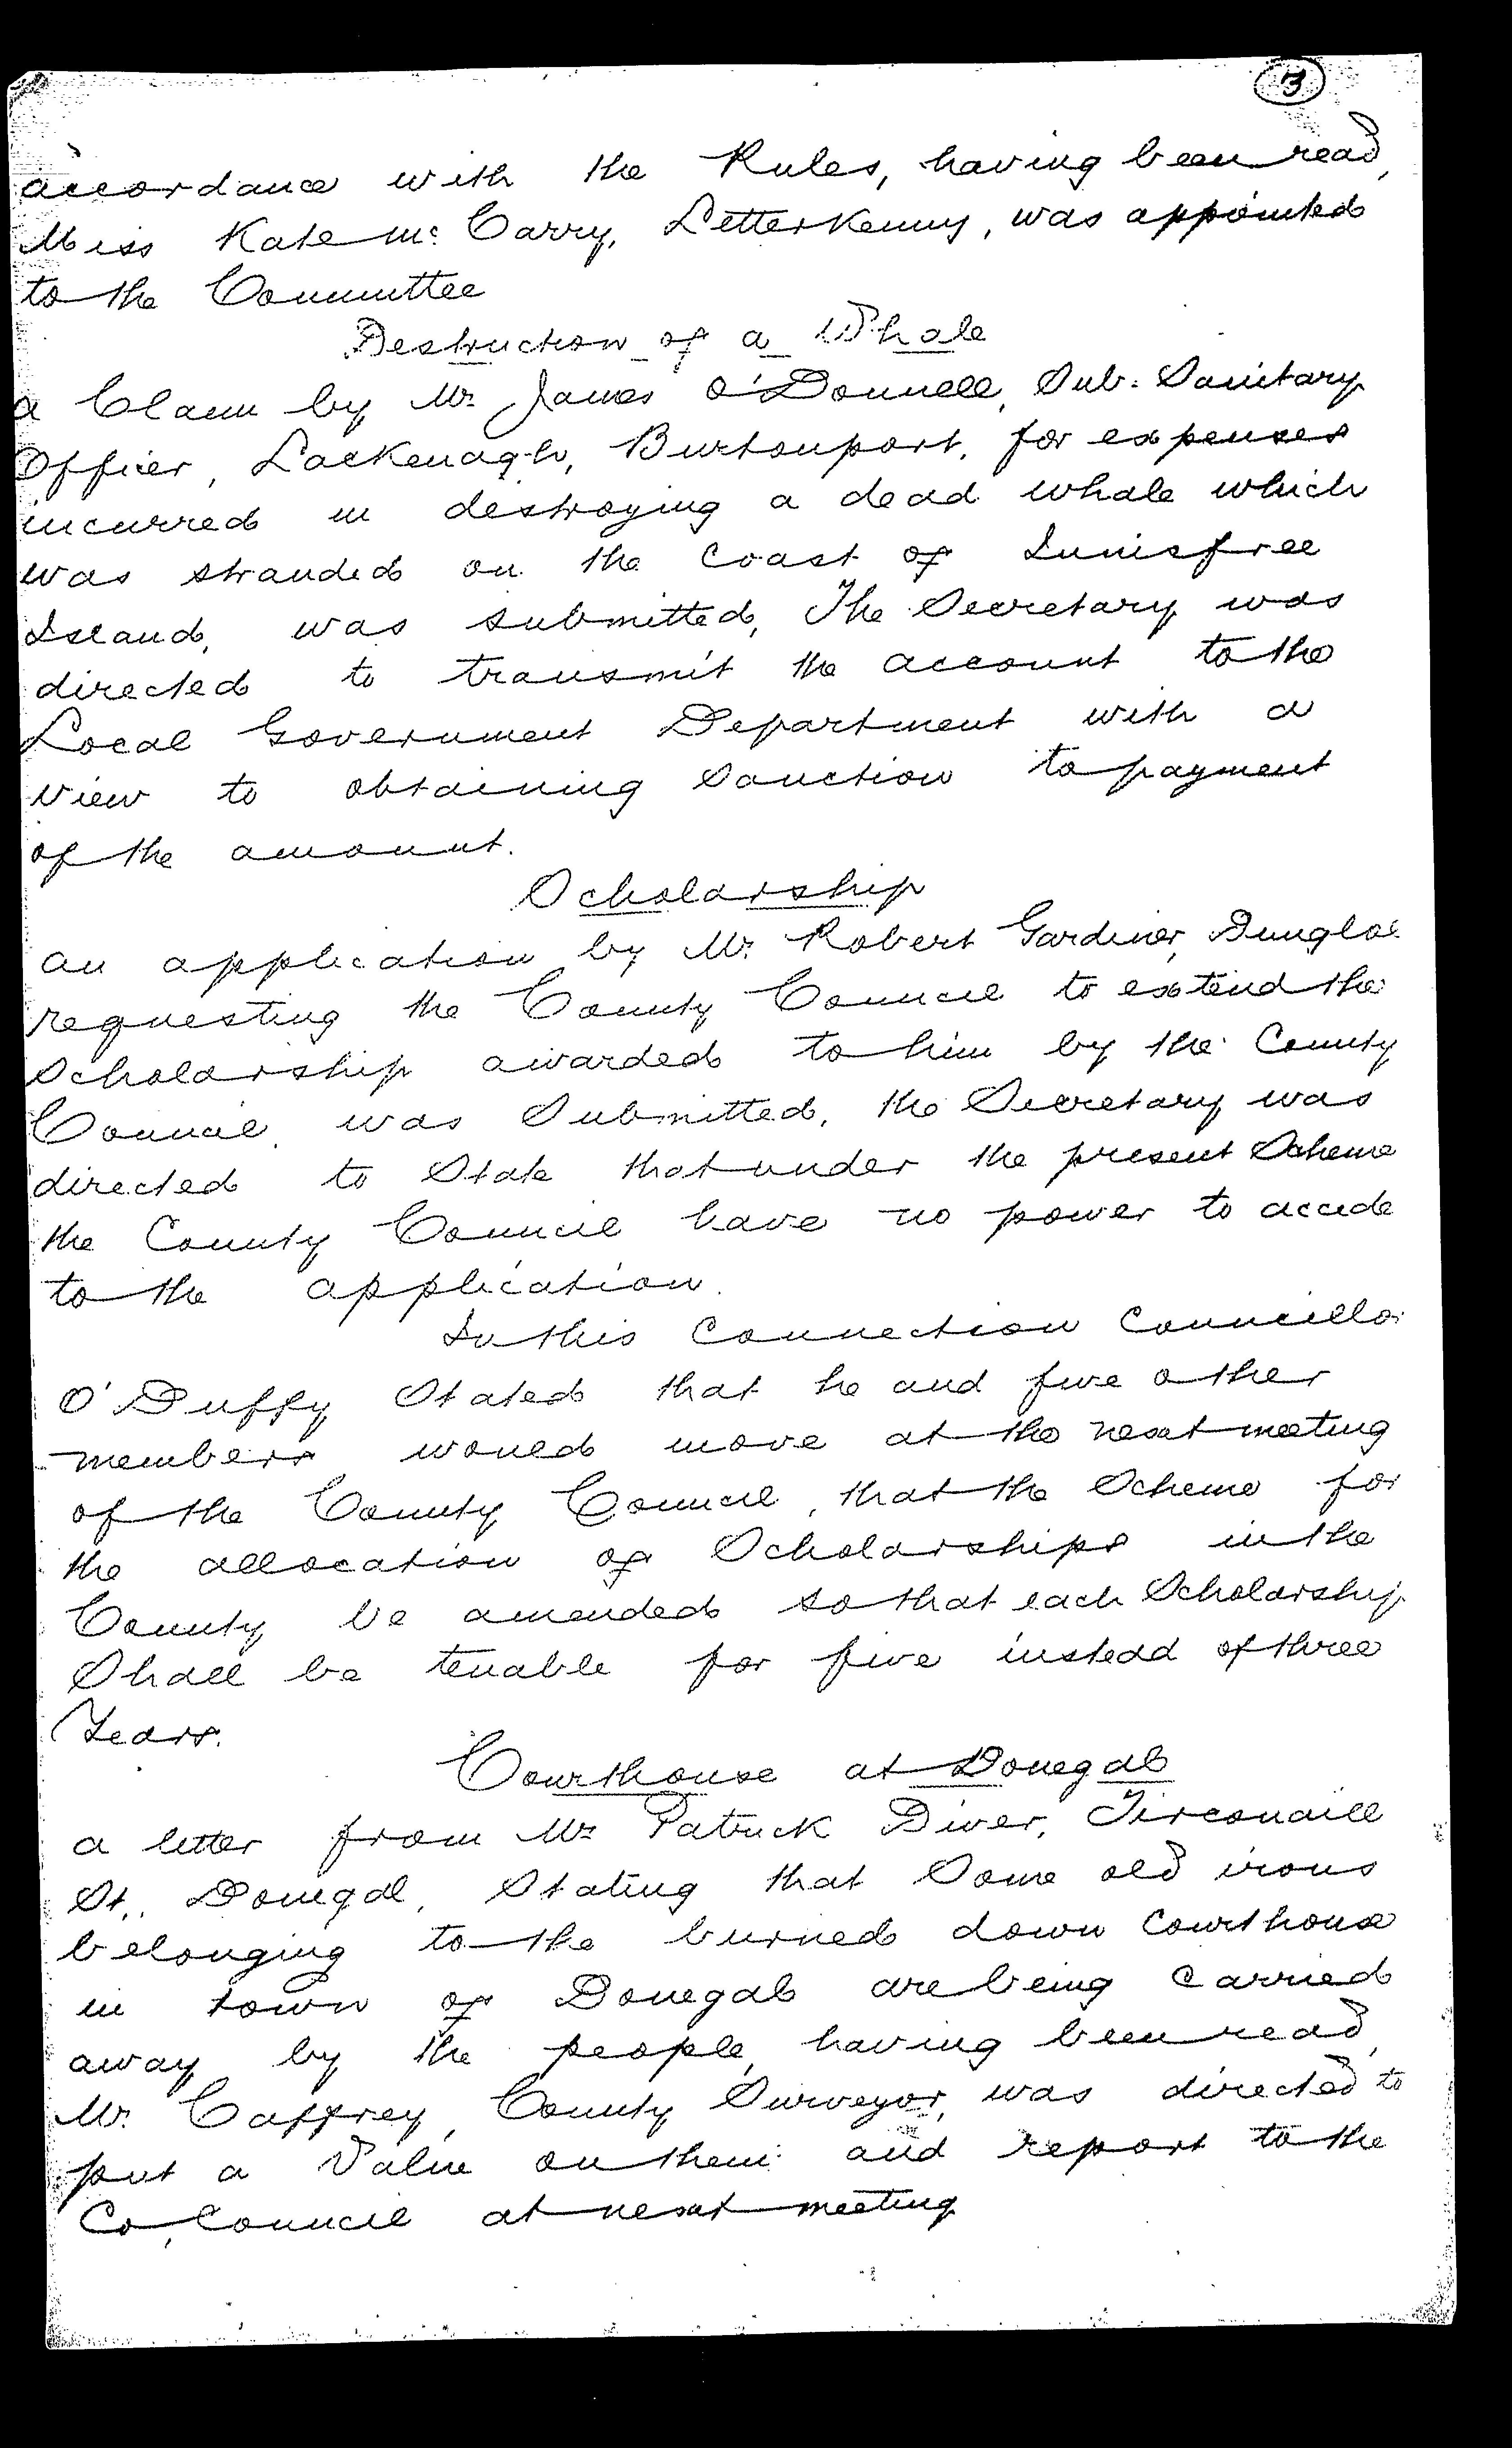 3
accordance with the Rules, having been read,
Miss Kate Mc. Carry, Letterkenny, was appointed
to the Committee
Destruction of a Whale
a Claim by Mr. James O'Donnell, Sub. Sanitary
Officer, Lackenagh, Burtonport, for expenses
incurred in destroying a dead whale which
was stranded on the coast of Innisfree
Island, was submitted, The Secretary was
directed to transmit the account to the
Local Government Department with a
view to obtaining Sanction to payment
of the amount.
Scholarship
an application by Mr. Robert Gardiner, Dungloe
requesting the County Council to extend the
Scholarship awarded to him by the County
Council, was Submitted, the Secretary was
directed to State that under the present Scheme
the County Council have no power to accede
to the application.
In this Connection Councillor
O'Duffy Stated that he and five other
members would move at the next meeting
of the County Council, that the Scheme for
the allocation of Scholarships in the
County be amended so that each Scholarship
Shall be tenable for five instead of three
Years.
Courthouse at Donegal
a letter from Mr Patrick Diver, Tirconaill
St., Donegal, Stating that Some old irons
belonging to the burned down Courthouse
in town of Donegal are being carried
away by the people, having been read,
Mr. Caffrey, County Surveyor, was directed to
put a Value on them and report to the
Co. Council at next meeting